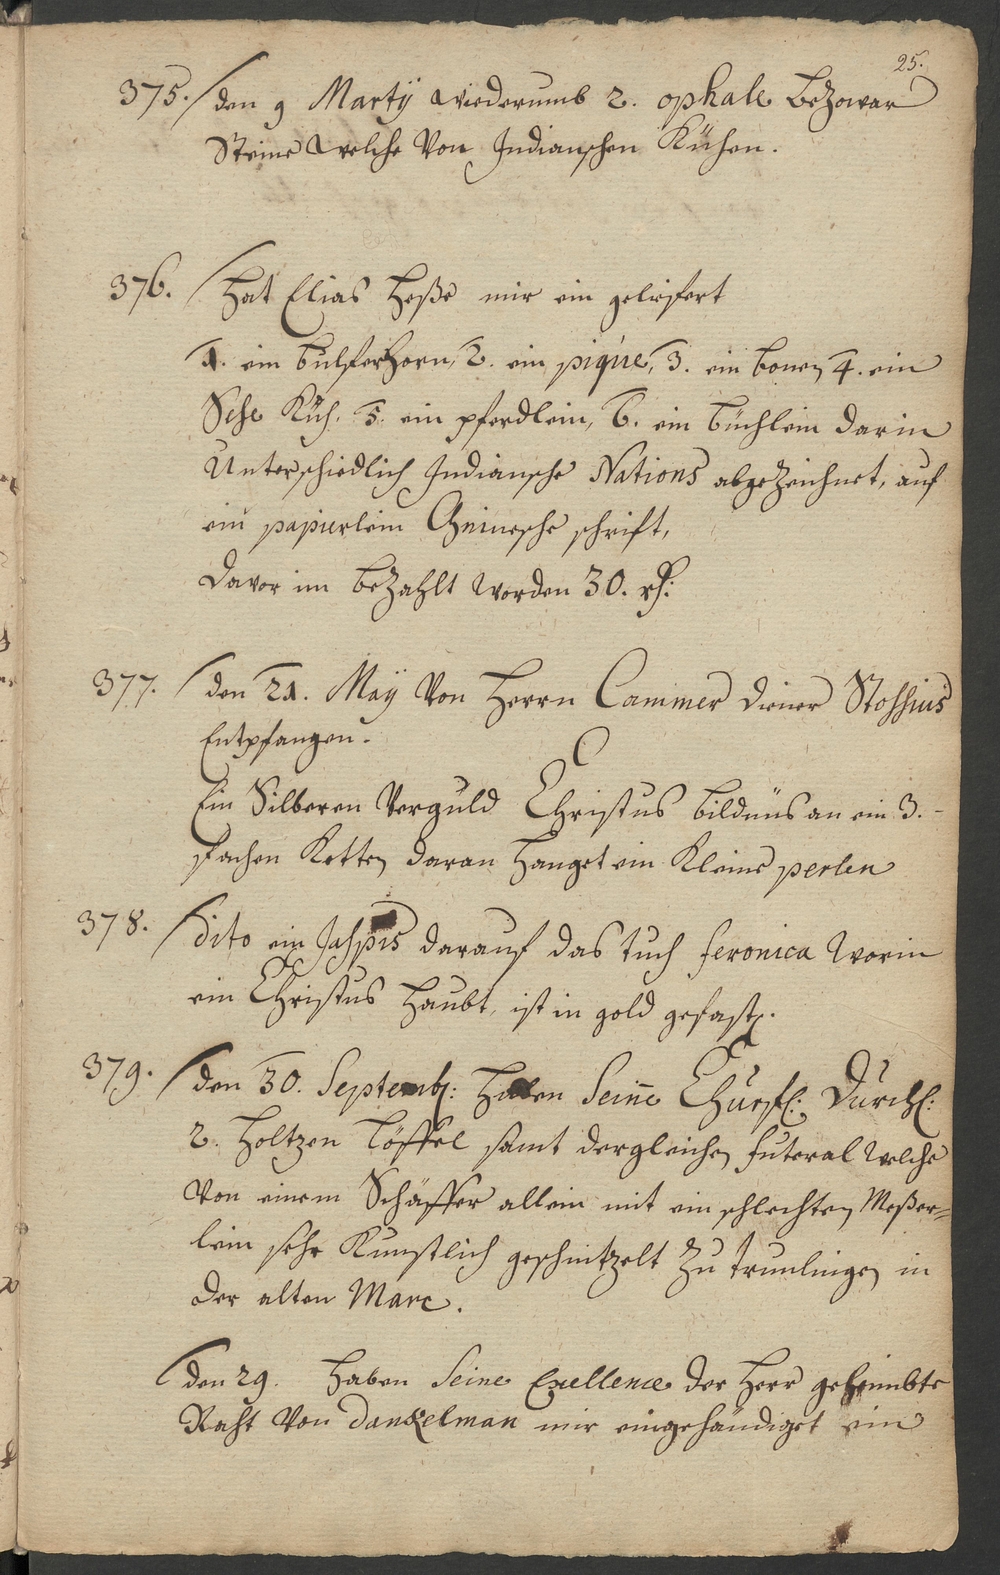 25.
375. den 9 Martÿ wiederumb 2. ophale Bezowar
Steine welche Von Indianschen Kühen.
376. Hat Elias Heße mir ein geliefert
1. ein bulferhorn, 2. ein piqúe, 3. ein bonen 4. ein
Sehe Küh. 5. ein pferdlein, 6. ein büchlein darin
Unterschiedlich Indiansche Nations abgezeichnet, auf
ein papierlein Chinesche schrift,
Davor im bezahlt worden 30. rh:
377. den 21. Maÿ Von Herrn Cammer diener Stossius
Entpfangen.
Ein Silberen Verguld Christus bildnüs an ein 3.-
fachen Ketten daran hanget ein Kleine perlen
378. dito ein Jaspis darauf das tuch feronica worin
ein Christus Haubt, ist in gold gefast.
379. den 30. Septemb: haben Seine Churfl: Durchl:
2. holtzen Löffel samt dergleichen futeral welche
Von einem Schäffer allein mit ein schlechten Meßer=
lein sehr Kunstlich geschnitzelt zu trunlingen in
der alten Marc.
den 29. haben Seine Exellence der Herr geheimbte
Raht Von Dankelman mir eingehändiget ein